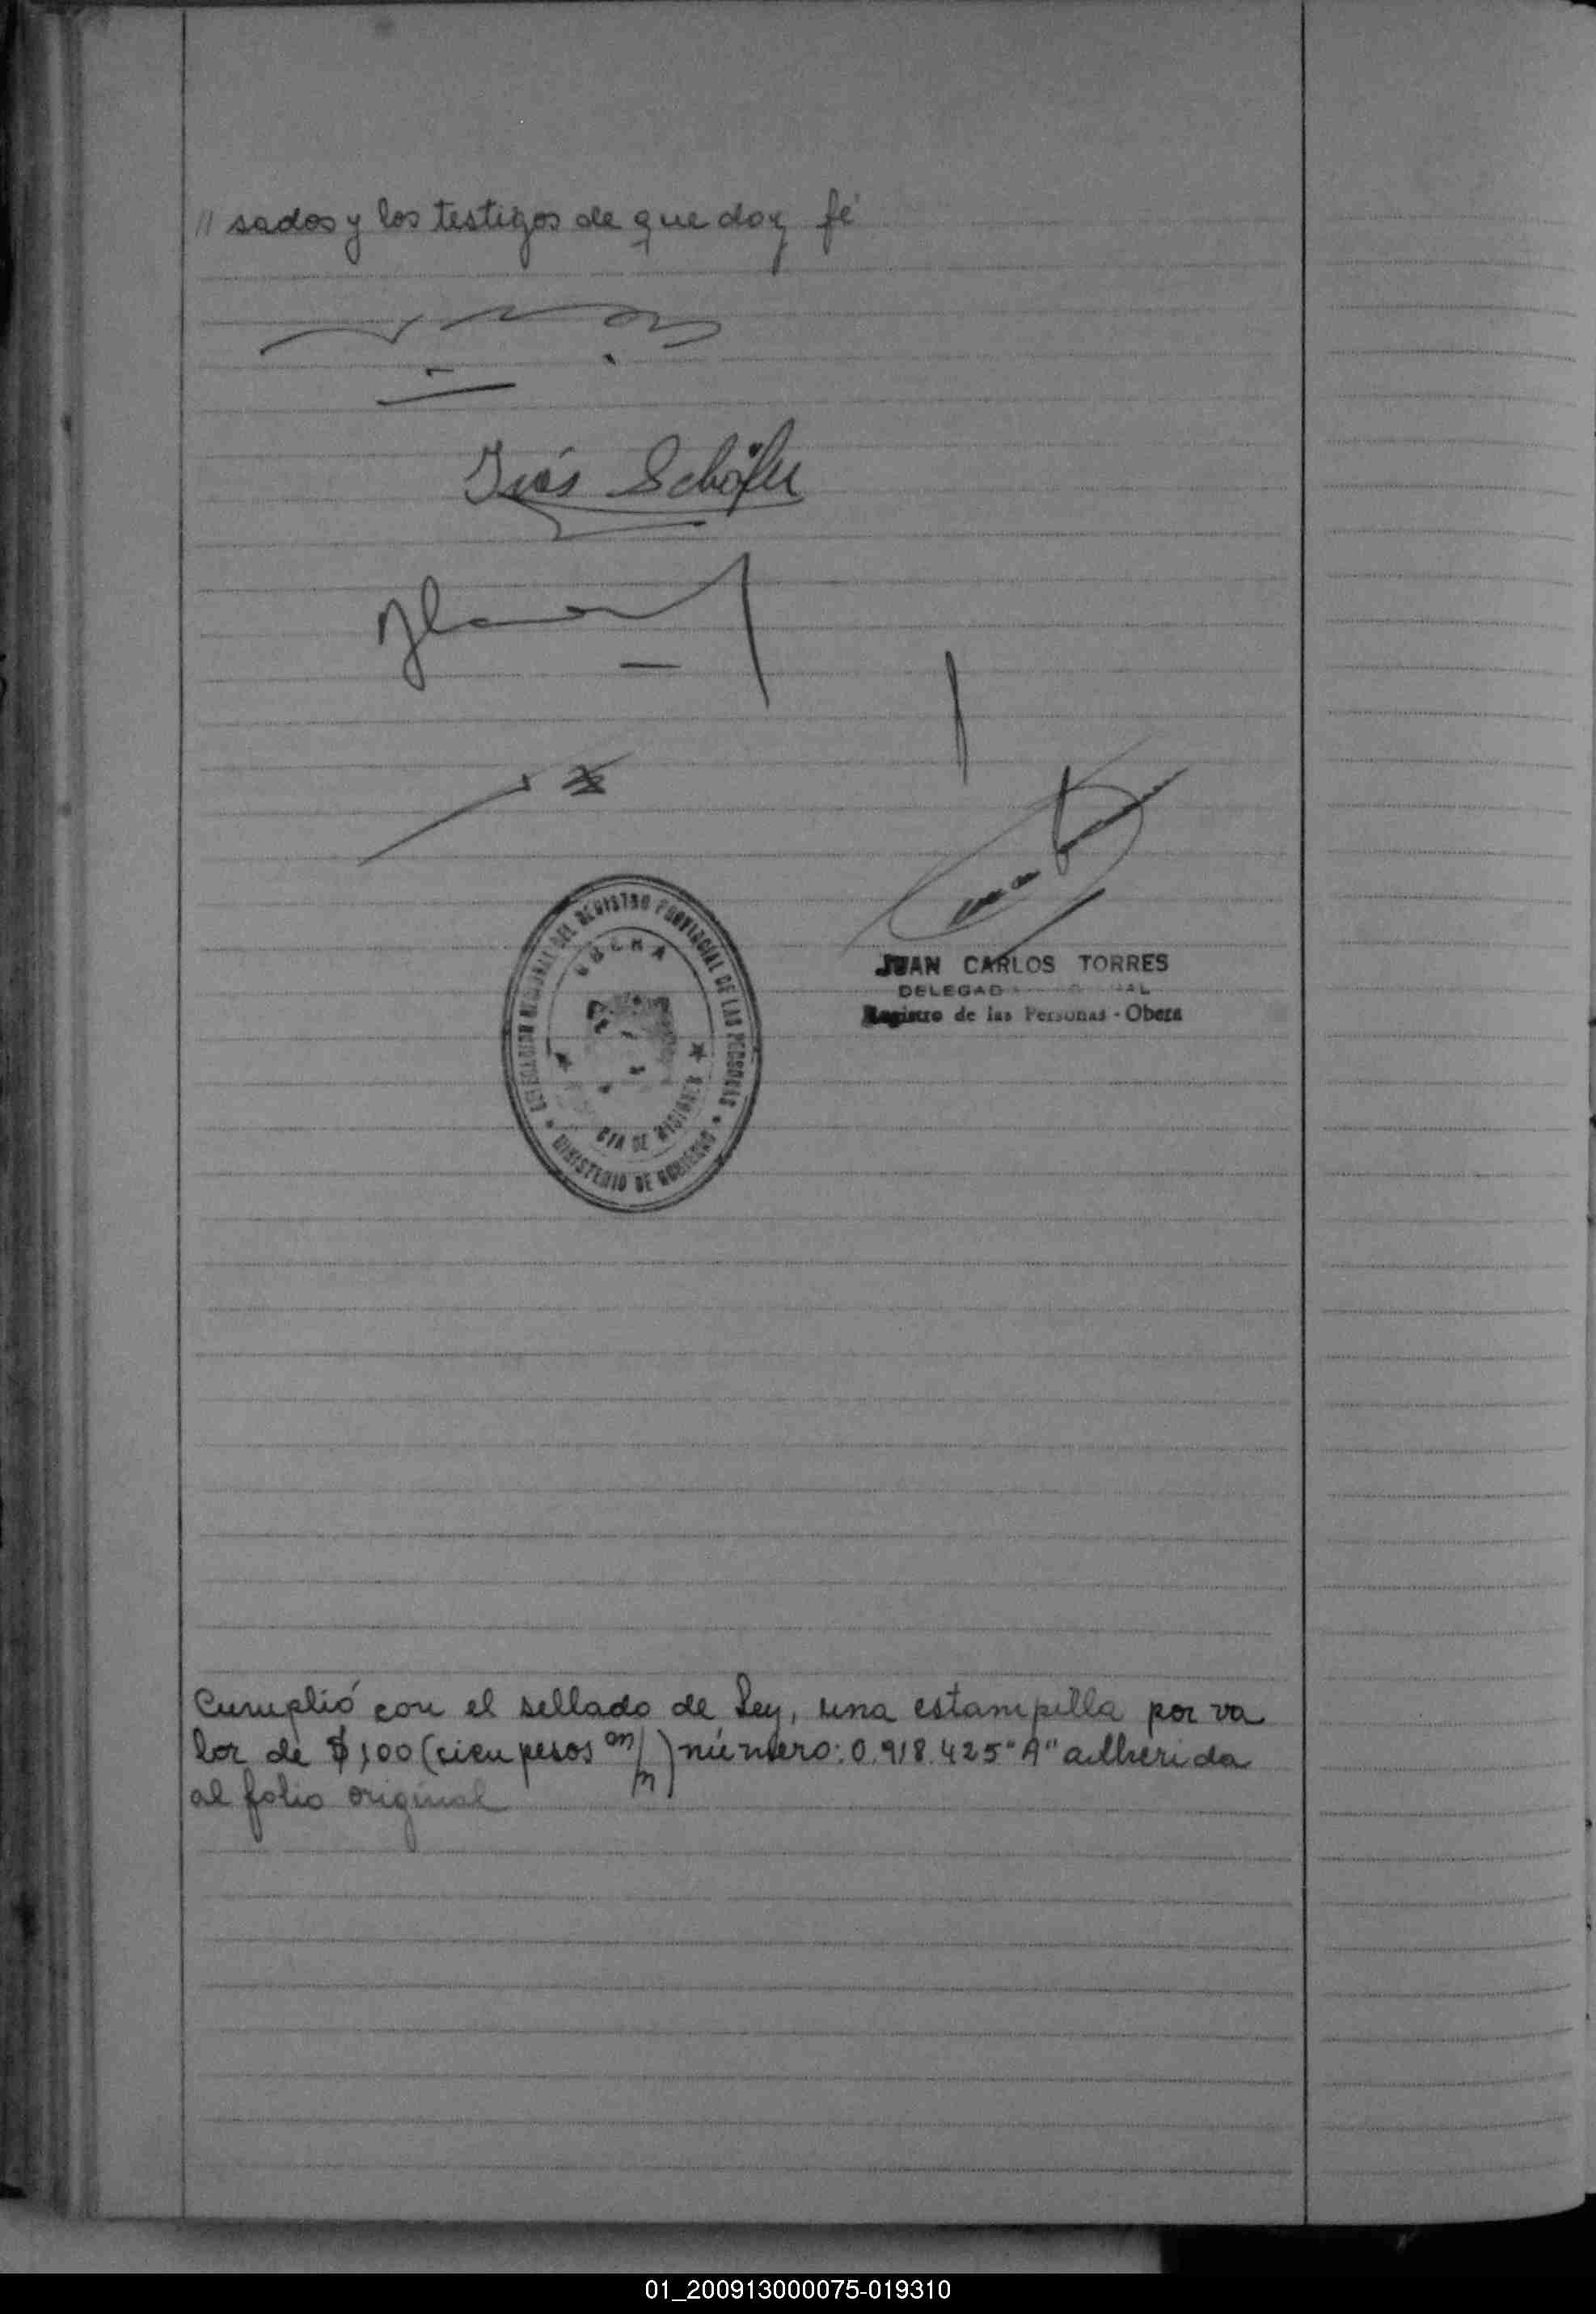 // sados y los testigos de que doy fé
Schäfer
DELEGACION REGIONAL DEL REGISTRO PROVINCIAL DE LAS PERSONAS
OBERA
CIA DE MISIONES
MINISTERIO DE GOBIERNO
JUAN CARLOS TORRES
DELEGAD AL
Registro de las Personas - Obera
Cumplió con el sellado de Ley, una estampilla por va
lor de $100 (cien pesos m/n) número: 0.918.425 "A" adherida
al folio original
01_200913000075-019310